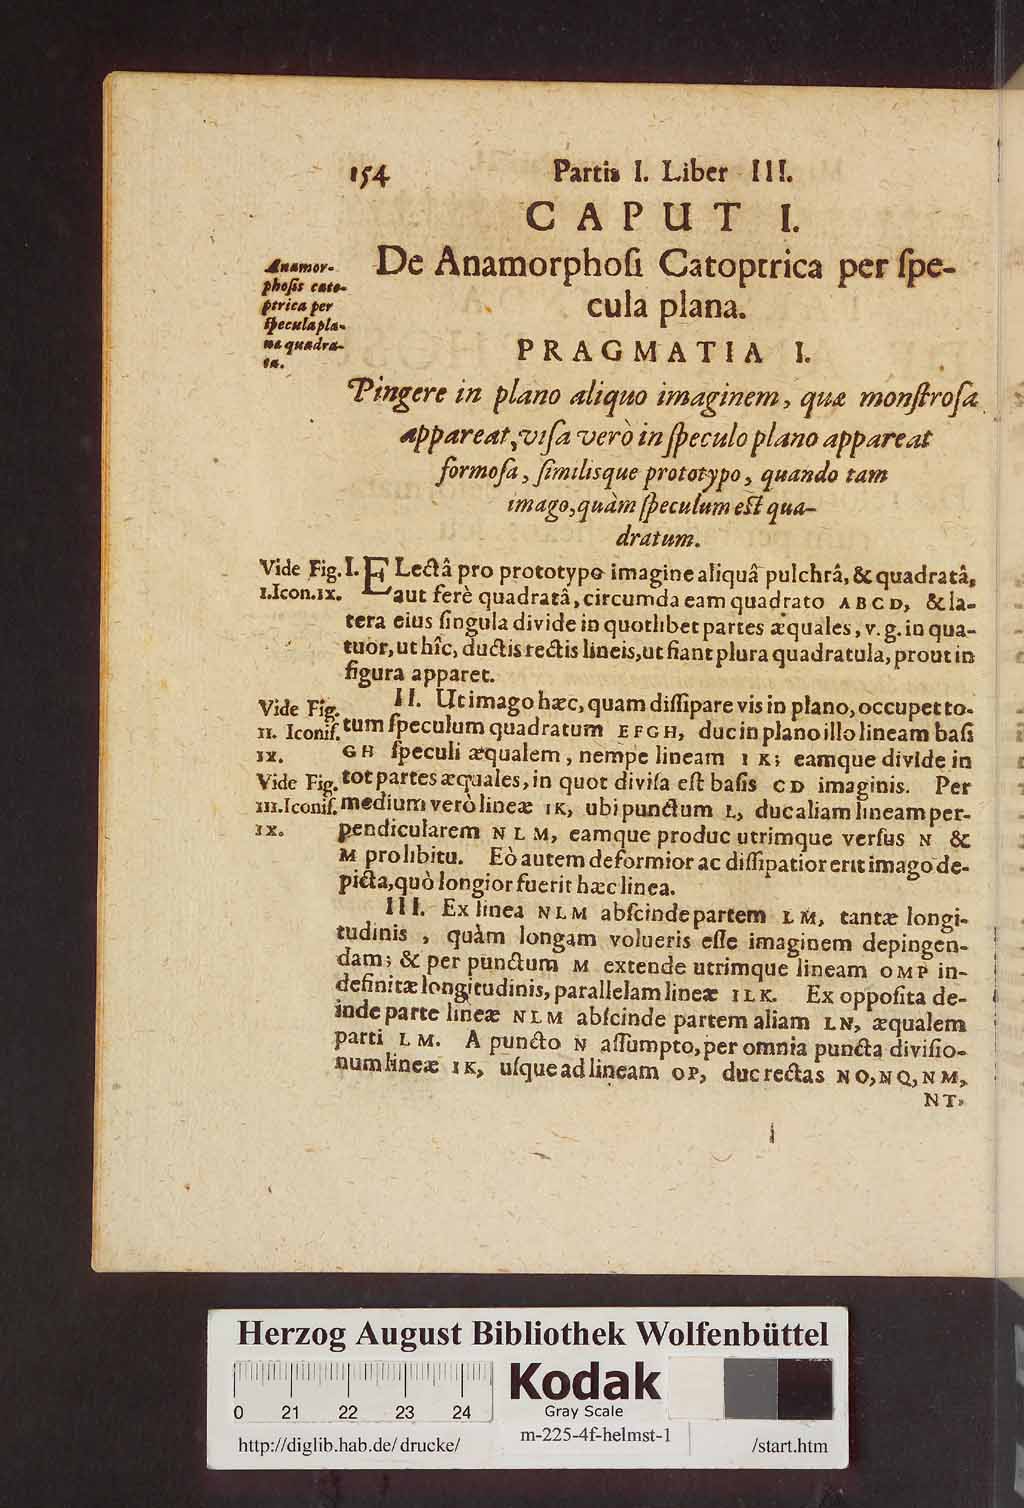 154 Partis I. Liber III.
CAPUT I.
De Anamorphoſi Catoptrica per ſpe-
cula plana.
Anamor-
phoſis cato-
ptrica per
ſpecula pla-
na quadra-
ta.
PRAGMATIA I.
Pingere in plano aliquo imaginem, quæ monſtroſa
appareat, viſa verò in ſpeculo plano appareat
formoſa, ſimilisque prototypo, quando tam
imago, quàm ſpeculum eſt qua-
dratum.
Vide Fig.
I. Icon. IX.
I. ELectâ pro prototypo imagine aliquâ pulchrâ, & quadratâ,
aut ferè quadratâ, circumda eam quadrato ABCD, & la-
tera eius ſingula divide in quotlibet partes æquales, v. g. in qua-
tuor, ut hîc, ductis rectis lineis, ut fiant plura quadratula, prout in
figura apparet.
Vide Fig.
II. Iconiſ.
IX.
Vide Fig.
III. Iconiſ.
IX.
II. Ut imago hæc, quam diſſipare vis in plano, occupet to-
tum ſpeculum quadratum EFGH, duc in plano illo lineam baſi
GH ſpeculi æqualem, nempe lineam IK; eamque divide in
tot partes æquales, in quot diviſa eſt baſis CD imaginis. Per
medium verò lineæ IK, ubi punctum L, duc aliam lineam per-
pendicularem NLM, eamque produc utrimque verſus N &
M pro libitu. Eò autem deformior ac diſſipatior erit imago de-
picta, quò longior fuerit hæc linea.
III. Ex linea NLM abſcinde partem LM, tantæ longi-
tudinis, quàm longam volueris eſſe imaginem depingen-
dam; & per punctum M extende utrimque lineam OMP in-
definitæ longitudinis, parallelam lineæ ILK. Ex oppoſita de-
inde parte lineæ NLM abſcinde partem aliam LN, æqualem
parti LM. A puncto N aſſumpto, per omnia puncta diviſio-
num lineæ IK, uſque ad lineam OP, duc rectas NO, NQ, NM,
NT,
Herzog August Bibliothek Wolfenbüttel
0 21 22 23 24
Kodak
Gray Scale
http://diglib.hab.de/drucke/ m-225-4f-helmst-1 /start.htm